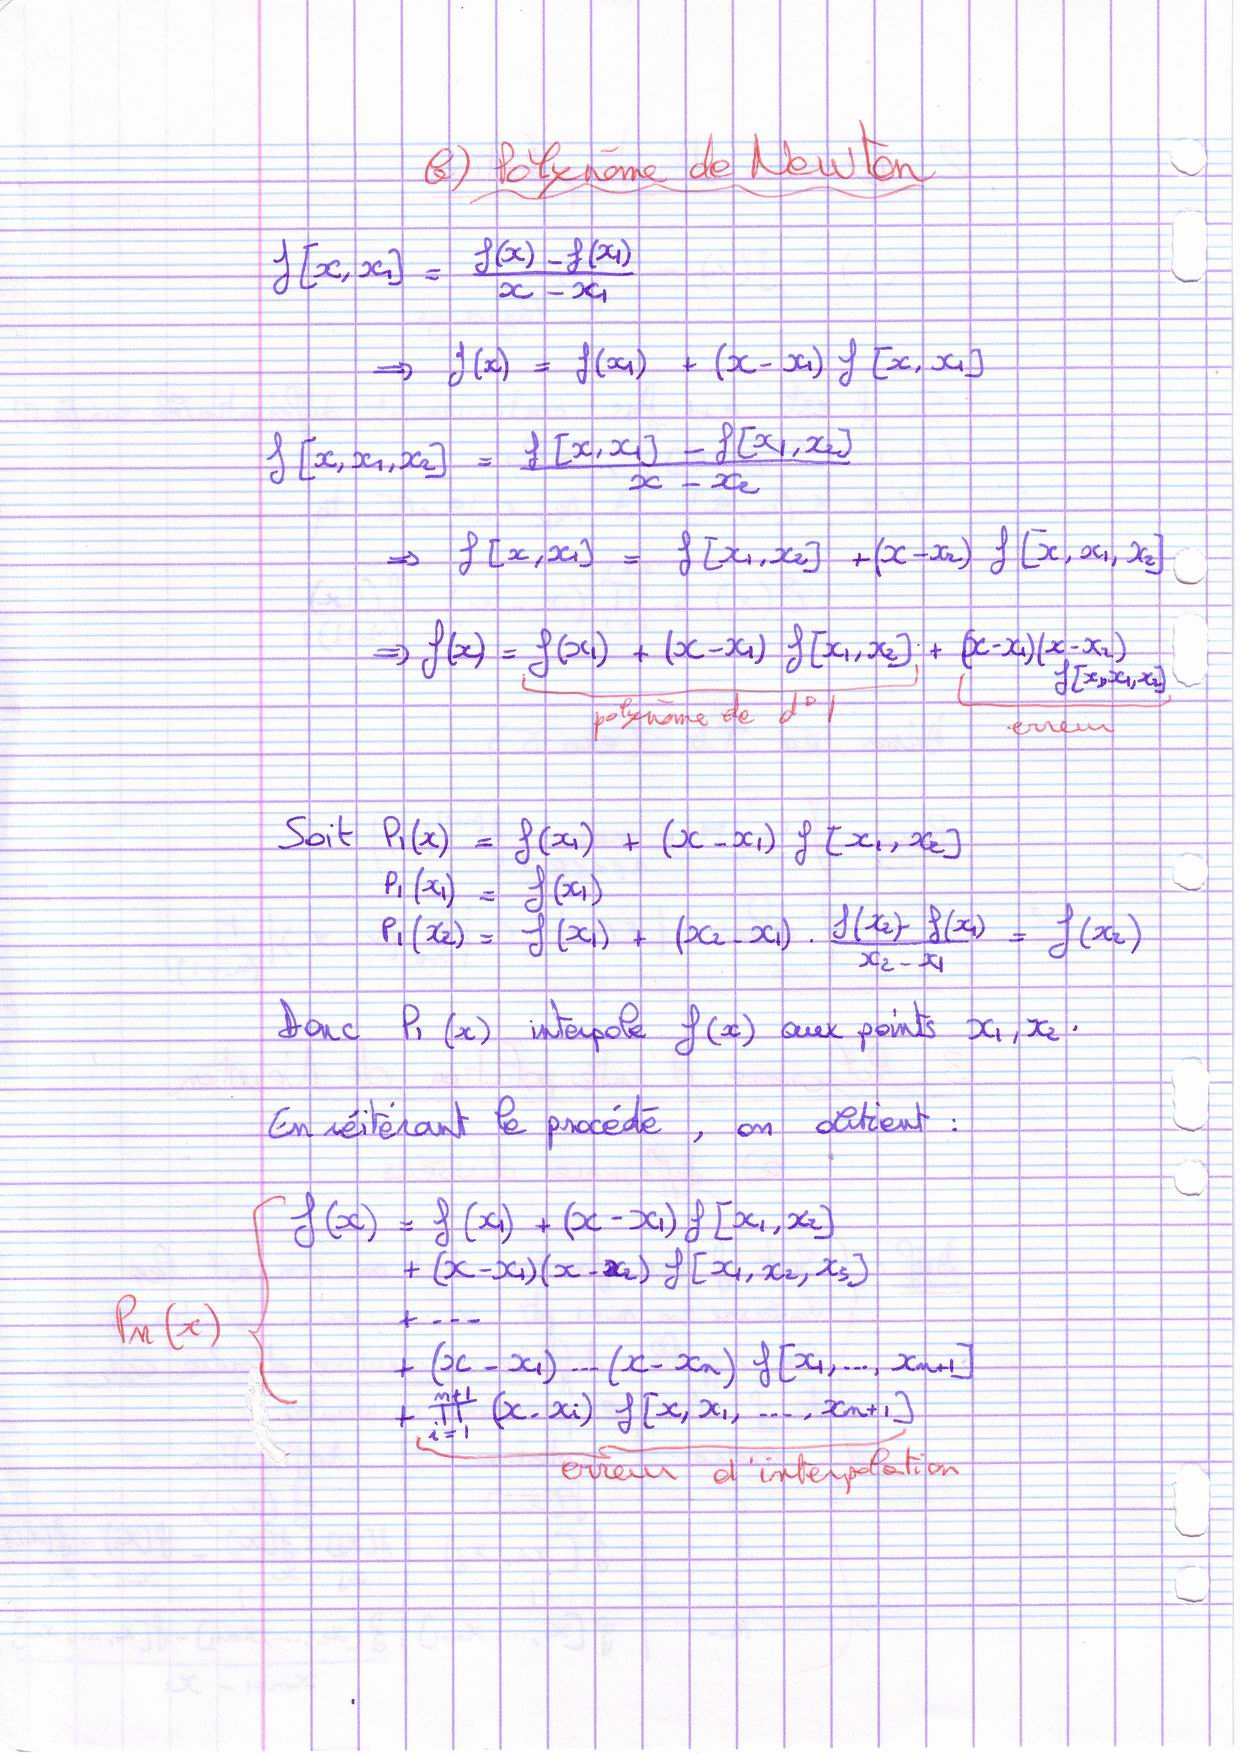 b) Polynôme de Newton
f[x, x₁] = (f(x) - f(x₁)) / (x - x₁)
⇒ f(x) = f(x₁) + (x - x₁) f[x, x₁]
f[x, x₁, x₂] = (f[x, x₁] - f[x₁, x₂]) / (x - x₂)
⇒ f[x, x₁] = f[x₁, x₂] + (x - x₂) f[x, x₁, x₂]
⇒ f(x) = f(x₁) + (x - x₁) f[x₁, x₂] + (x - x₁)(x - x₂)
f[x, x₁, x₂]
polynôme de d° 1 erreur
Soit P₁(x) = f(x₁) + (x - x₁) f[x₁, x₂]
P₁(x₁) = f(x₁)
P₁(x₂) = f(x₁) + (x₂ - x₁) . (f(x₂) - f(x₁)) / (x₂ - x₁) = f(x₂)
Donc P₁(x) interpole f(x) aux points x₁, x₂.
En réitérant le procédé, on obtient :
f(x) = f(x₁) + (x - x₁) f[x₁, x₂]
+ (x - x₁)(x - x₂) f[x₁, x₂, x₃]
Pn(x)
+ ---
+ (x - x₁) ... (x - xn) f[x₁, ..., xn+1]
+ ∏_{i=1}^{n+1} (x - xi) f[x, x₁, ..., xn+1]
erreur d'interpolation